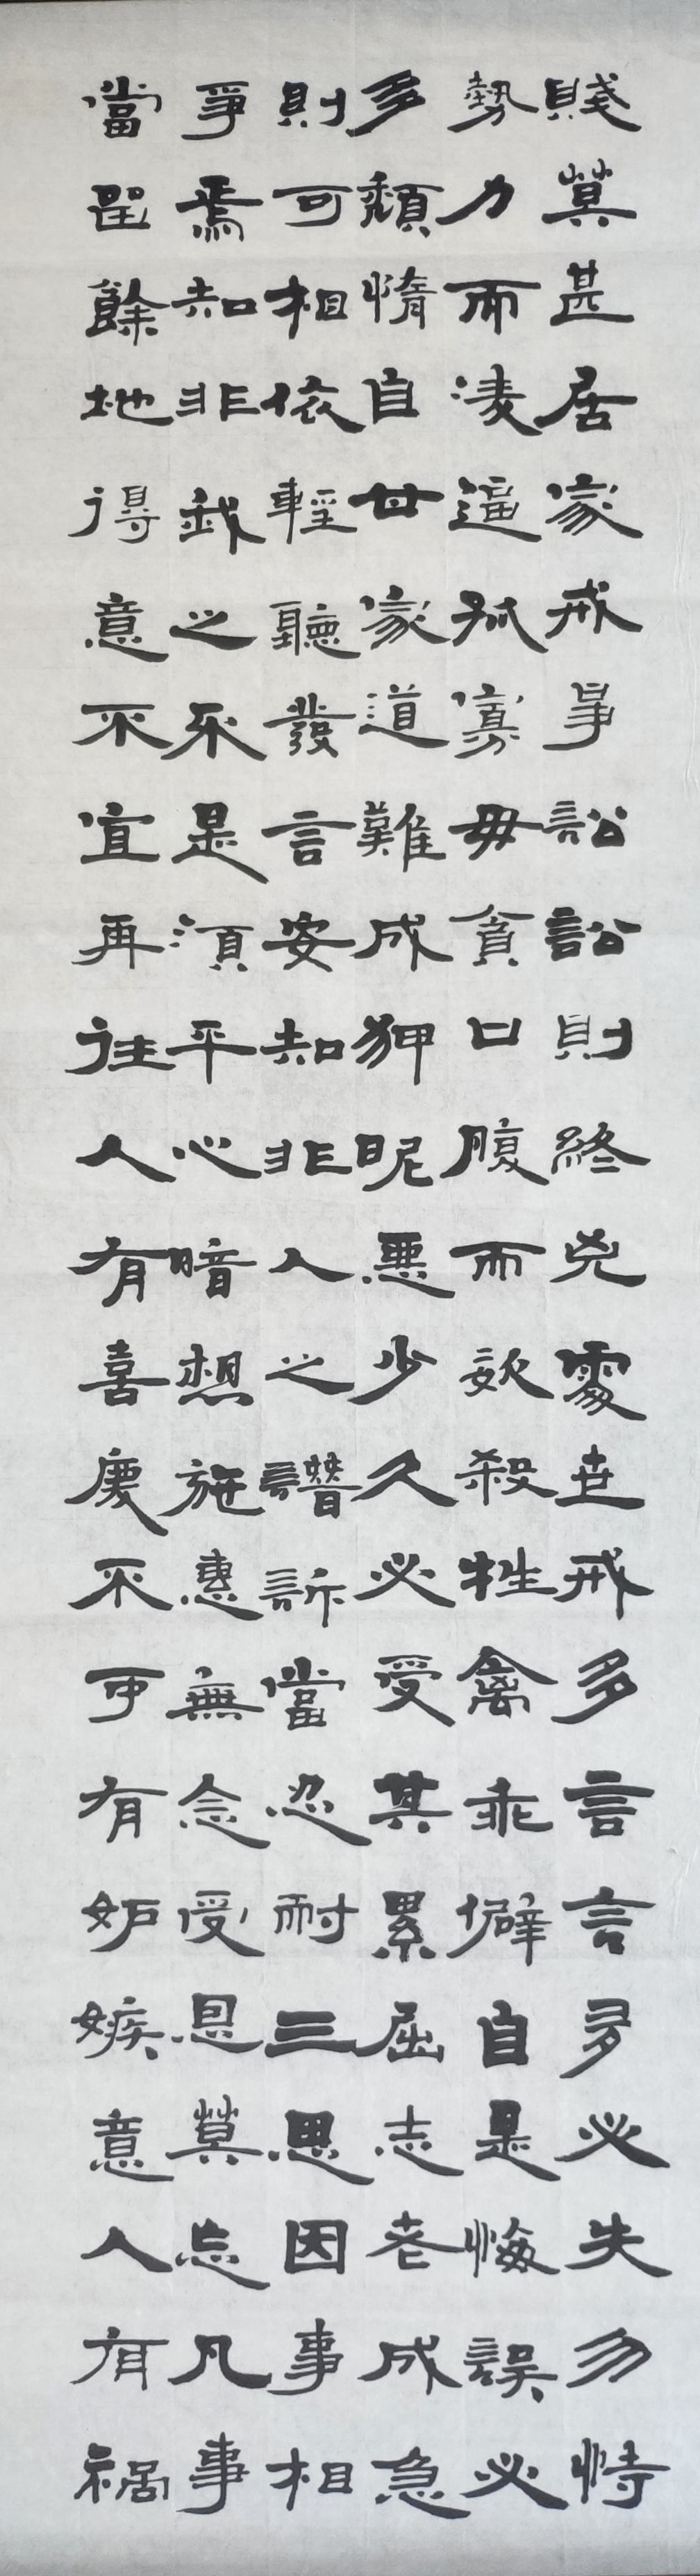 賤莫甚居家戒爭訟訟則終兇處世戒多言言多必失勿恃
勢力而凌逼孤寡毋貪口腹而恣殺牲禽乖僻自是悔誤必
多頹惰自甘家道難成狎昵惡少久必受其累屈志老成急
則可相依輕聽發言安知非人之譖訴當忍耐三思因事相
爭焉知非我之不是須平心暗想施惠無念受恩莫忘凡事
當留餘地得意不宜再往人有喜慶不可有妒嫉意人有禍